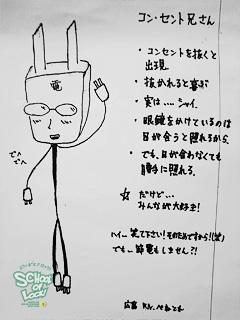 コン・セント兄さん
・コンセントを抜くと
出現
・抜かれると喜ぶ
・実は…シャイ
・眼鏡をかけているのは
目が合うと照れるから。
・でも、目が合わなくても
勝手に照れる。
☆だけど…
みんなが大好き!
電
でへ
でへ
ハイ… 笑って下さい! そのためですから!!(笑)
でも… 節電もしません?!
SCHOOL
OF
LOCK!
広島 R.N.